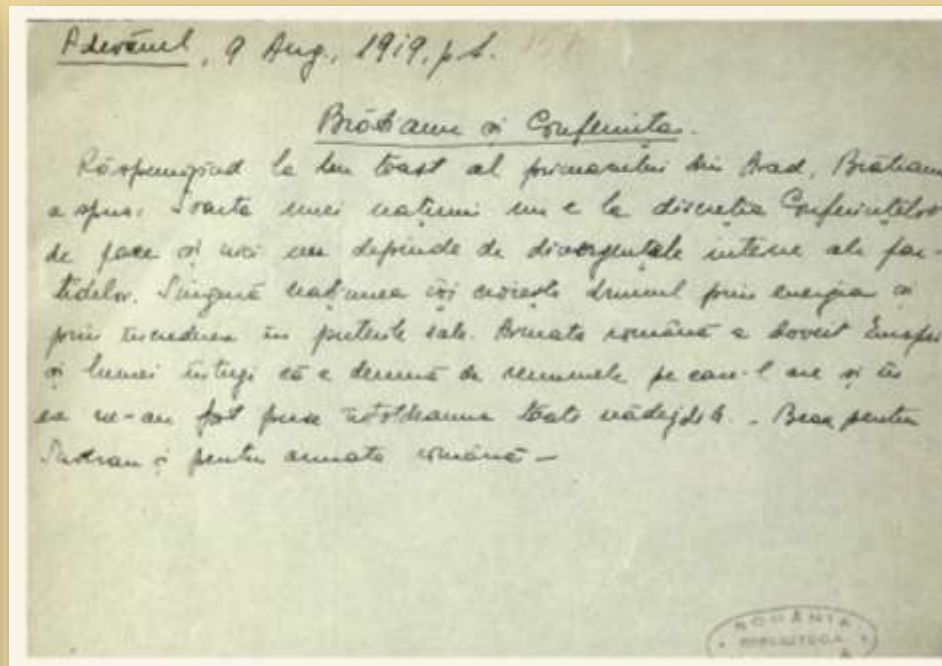 Adevărul, 9 Aug., 1919, p 1.
Brătianu și Conferința.
Răspunzînd la un toast al primarului din Arad, Brătianu
a spus: Soarta unei națiuni nu e la discreția Conferințelor
de pace și nici nu depinde de divergențele interne ale par-
tidelor. Singură națiunea își croiește drumul prin energia și
prin încrederea în puterile sale. Armata română a dovedit Europei
și lumei întregi că e demnă de renumele pe care-l are și în
ea ne-au fost puse întotdeauna toate nădejdile. - Beau pentru
și pentru armata română -
ROMÂNIA
BIBLIOTECA